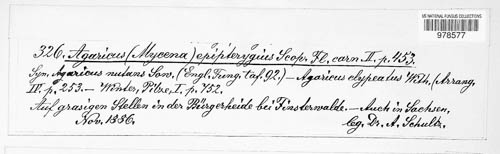 US NATIONAL FUNGUS COLLECTIONS
978577
326. Agaricus (Mycena) epipterygius Scop. Fl. carn. II. p. 453.
Syn. Agaricus nutans Sow. (Engl. Fung. taf. 92.) — Agaricus clypeatus With. (Arrang.
IV. p. 253. — Winter, Pilze, I. p. 752.
Auf grasigen Stellen in der Bürgerheide bei Finsterwalde. — Auch in Sachsen.
Nov. 1886. leg. Dr. A. Schultz.